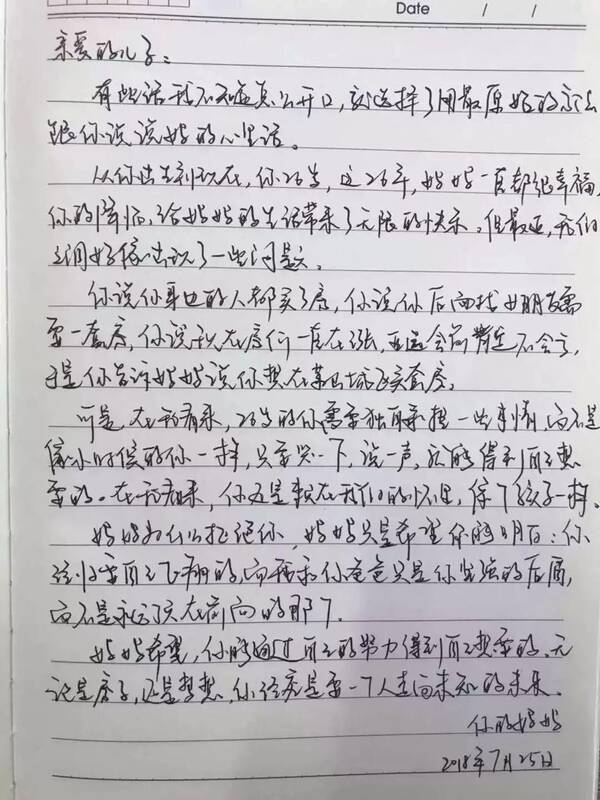 Date / /
亲爱的儿子：
有些话我不知怎么开口，就选择了用最原始的方法
跟你说说妈的心里话。
从你出生到现在，你26岁，这26年，妈妈一直都很幸福，
你的降临，给妈妈的生活带来了无限的快乐。但最近，我们
之间好像出现了一些问题。
你说你身边的人都买了房，你说你后面找女朋友需
要一套房，你说现在房价一直在涨，亚运会前肯定不会亏，
于是你告诉妈妈说你想在城区买套房。
可是，在我看来，26岁的你需要独自承担一些事情，而不是
像小时候的你一样，只要哭一下，说一声，就能得到自己想
要的。在我看来，你还是躲在我们的怀里，像个孩子一样。
妈妈为什么拒绝你，妈妈只是希望你能明白：你
终归要自己飞翔的，而我和你爸爸只是你坚强的后盾，
而不是永远顶在前面的那个。
妈妈希望，你能通过自己的努力得到自己想要的，无
论是房子，还是梦想，你终究是要一个人走向未知的未来。
你的妈妈
2018年7月25日